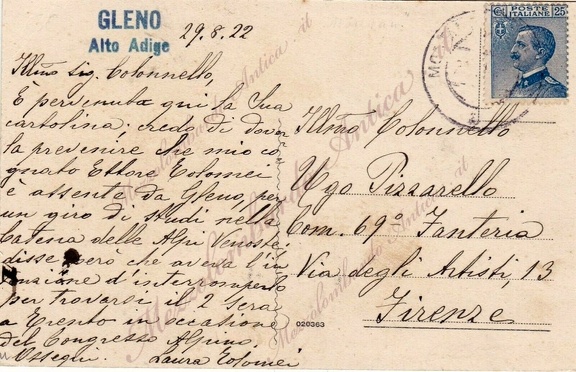 GLENO
Alto Adige
29.8.22
Illmo Sig. Colonnello,
È pervenuta qui la Sua
cartolina; credo di dover
la prevenire che mio co
gnato Ettore Tolomei
è assente da Gleno per
un giro di studi nella
Catena delle Alpi Venoste
disse però che aveva l'in
tenzione d'interromperlo
per trovarsi il 2 sera
a Trento in occasione
del Congresso Alpino.
Ossequi. Laura Tolomei
POSTE ITALIANE
Cent 25
MO
Illmo Colonnello
Ugo Pizzarello
Com. 69° Fanteria
Via degli Artisti, 13
Firenze
020363
Mezzolombardo Antica .it